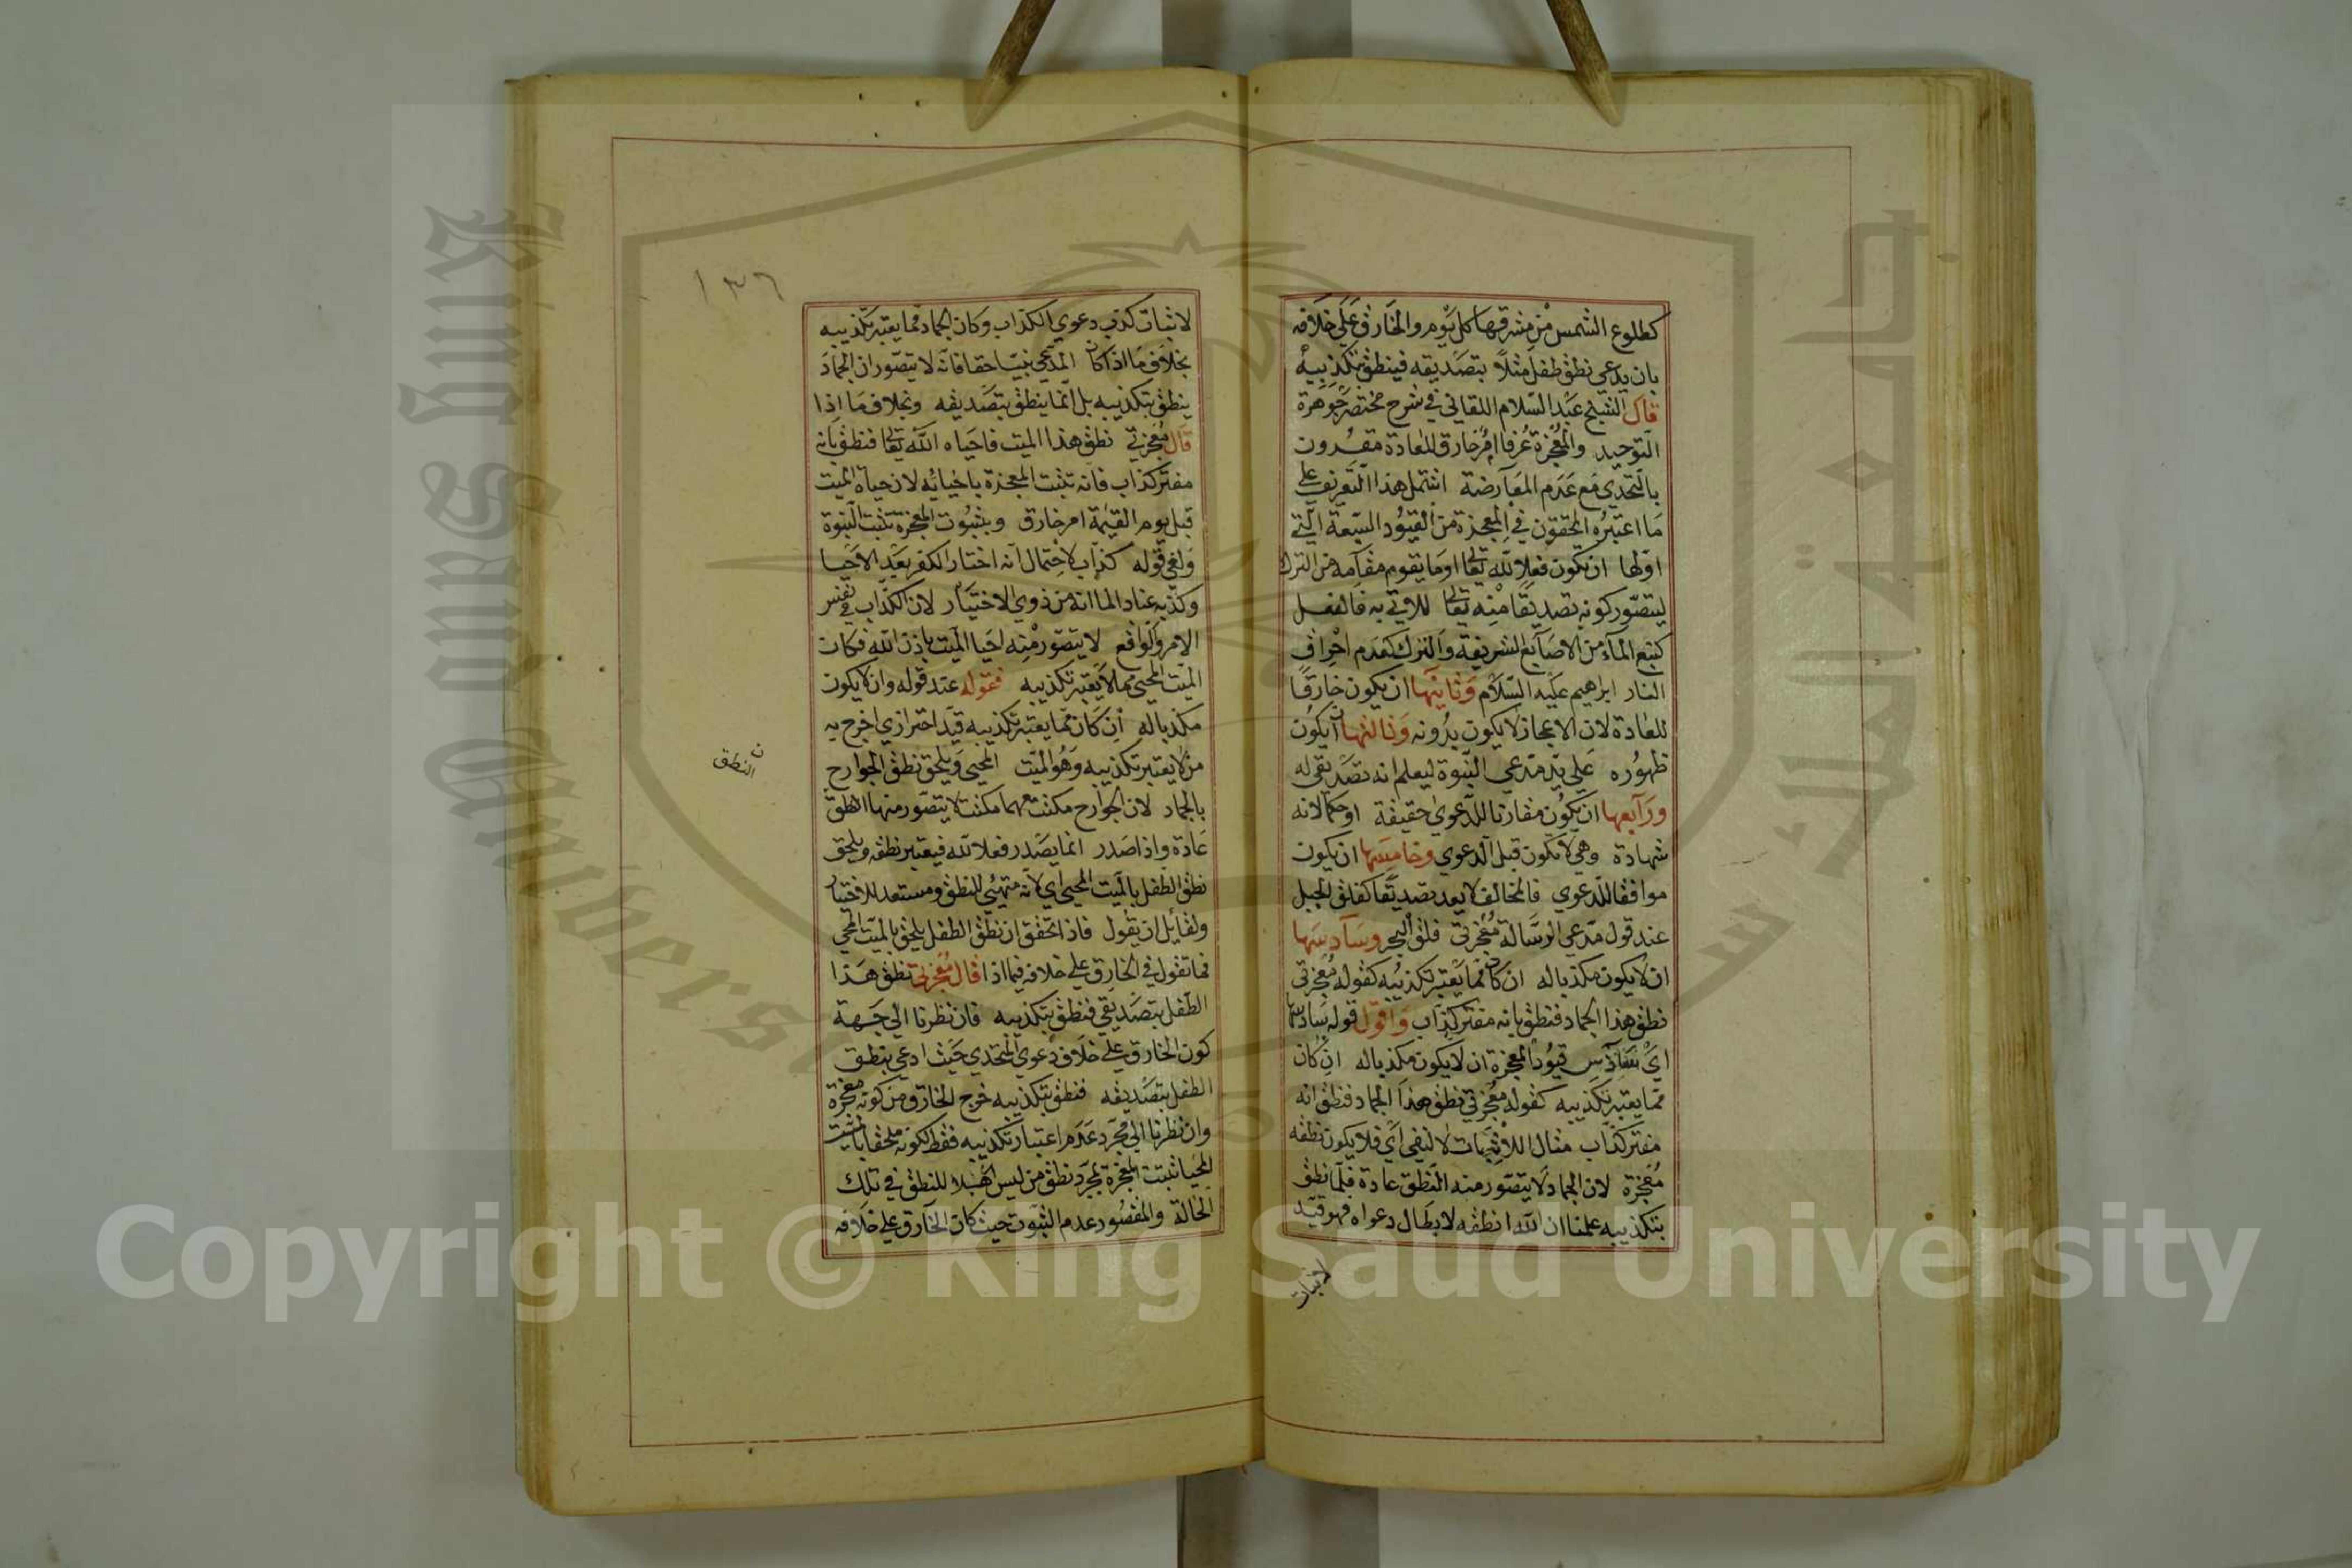 كطلوع الشمس من مشرقها كل يوم والخارق على خلافه
بان يدعي نطق طفل مثلا بتصديقه فينطق بتكذيبه
قال الشيخ عبد السلام اللقاني في شرح مختصر جوهرة
التوحيد والمعجزة عرفا امر خارق للعادة مقرون
بالتحدي مع عدم المعارضة اشتمل هذا التعريف على
ما اعتبره المحققون في المعجزة من القيود السبعة التي
اولها ان يكون فعلا لله تعالى اوما يقوم مقامه من الترك
ليتصور كونه تصديقا منه تعالى للاتي به فالفعل
كنبع الماء من الاصابع الشريفة والترك كعدم احراق
النار ابراهيم عليه السلام وثانيها ان يكون خارقا
للعادة لان الاعجاز لا يكون بدونه وثالثها ان يكون
ظهوره على يد مدعي النبوة ليعلم انه تصديق له
ورابعها ان يكون مقارنا للدعوي حقيقة او حكما لانه
شهادة وهي لا تكون قبل الدعوي وخامسها ان يكون
موافقا للدعوي فالمخالف لا يعد تصديقا كفلق الجبل
عند قول مدعي الرسالة معجزتي فلق البحر وسادسها
ان لا يكون مكذبا له ان كان مما يعتبر تكذيبه كقوله معجزتي
نطق هذا الجماد فنطق بانه مفتر كذاب واقول قوله سادسها
اي سادس قيود المعجزة ان لا يكون مكذبا له ان كان
مما يعتبر تكذيبه كقوله معجزتي نطق هذا الجماد فنطق انه
مفتر كذاب مثال للاثبات لا لنفي اي فلا يكون نطقه
معجزة لان الجماد لا يتصور منه النطق عادة فلما نطق
بتكذيبه علمنا ان الله انطقه لابطال دعواه فهو قيد
لاثبات
١٣٦
لاثبات كذب دعوي الكذاب وكان الجماد مما يعتبر تكذيبه
بخلاف ما اذا كان المدعي نبيا حقا فانه لا يتصور ان الجماد
ينطق بتكذيبه بل انما ينطق بتصديقه وبخلاف ما اذا
قال معجزتي نطق هذا الميت فاحياه الله تعالى فنطق بانه
مفتر كذاب فانه تثبت المعجزة باحيائه لان حياة الميت
قبل يوم القيمة امر خارق وبثبوت المعجزة تثبت النبوة
ولغي قوله كذاب لاحتمال انه اختار الكفر بعد الاحيا
وكذبه عنادا لما انه من ذوي الاختيار لان الكذاب في نفس
الامر والواقع لا يتصور منه احيا الميت باذن الله فكان
الميت المحيي مما لا يعتبر تكذيبه فقوله عند قوله وان لا يكون
مكذبا له ان كان مما يعتبر تكذيبه قيد احترازي اخرج به
من لا يعتبر تكذيبه وهو الميت المحيي ويلحق نطق الجوارح
بالجماد لان الجوارح مكنت مهما مكنت لا يتصور منها النطق
ن
النطق
عادة واذا صدر انما يصدر فعلا لله فيعتبر نطقه ويلحق
نطق الطفل بالميت المحيي اي لانه متهيئ للنطق ومستعد للاختيار
ولقايل ان يقول فاذا تحقق ان نطق الطفل يلحق بالميت المحيي
فما تقول في الخارق على خلافه فيما اذا قال معجزتي نطق هذا
الطفل بتصديقي فنطق بتكذيبه فان نظرنا الي جهة
كون الخارق على خلاف دعوي المتحدي حيث ادعي بنطق
الطفل بتصديقه فنطق بتكذيبه خرج الخارق من كونه معجزة
وان نظرنا الي مجرد عدم اعتبار تكذيبه فقط لكونه ملحقا بالميت
المحيا ثبتت المعجزة بمجرد نطق من ليس اهلا للنطق في تلك
الحالة والمقصود عدم الثبوت حيث كان الخارق على خلافه
King Saud University
Copyright © King Saud University